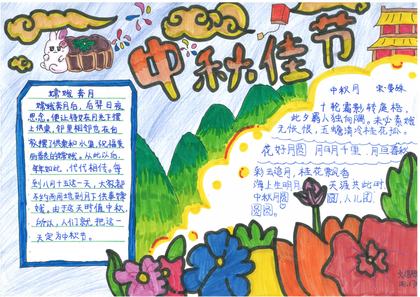 中秋佳节
嫦娥奔月
嫦娥奔月后，后羿日夜
思念。便让侍女在月光下摆
上供桌，邻里相邻也在自
家摆了供桌和水果，祝福美
丽善良的嫦娥。从此以后，
年年如此，代代相传。每
到八月十五这一天，大家都
不约而同地到月下供奉嫦
娥。由于这天时值中秋，
所以，人们就把这一
天定为中秋节。
中秋月 宋·晏殊
十轮霜影转庭梧，
此夕羁人独向隅。未必素娥
无怅恨，玉蟾清冷桂花孤。
花好月圆 月明千里 月旦春秋
彩云追月，桂花飘香
海上生明月，天涯共此时
中秋月圆，人儿团
圆圆。